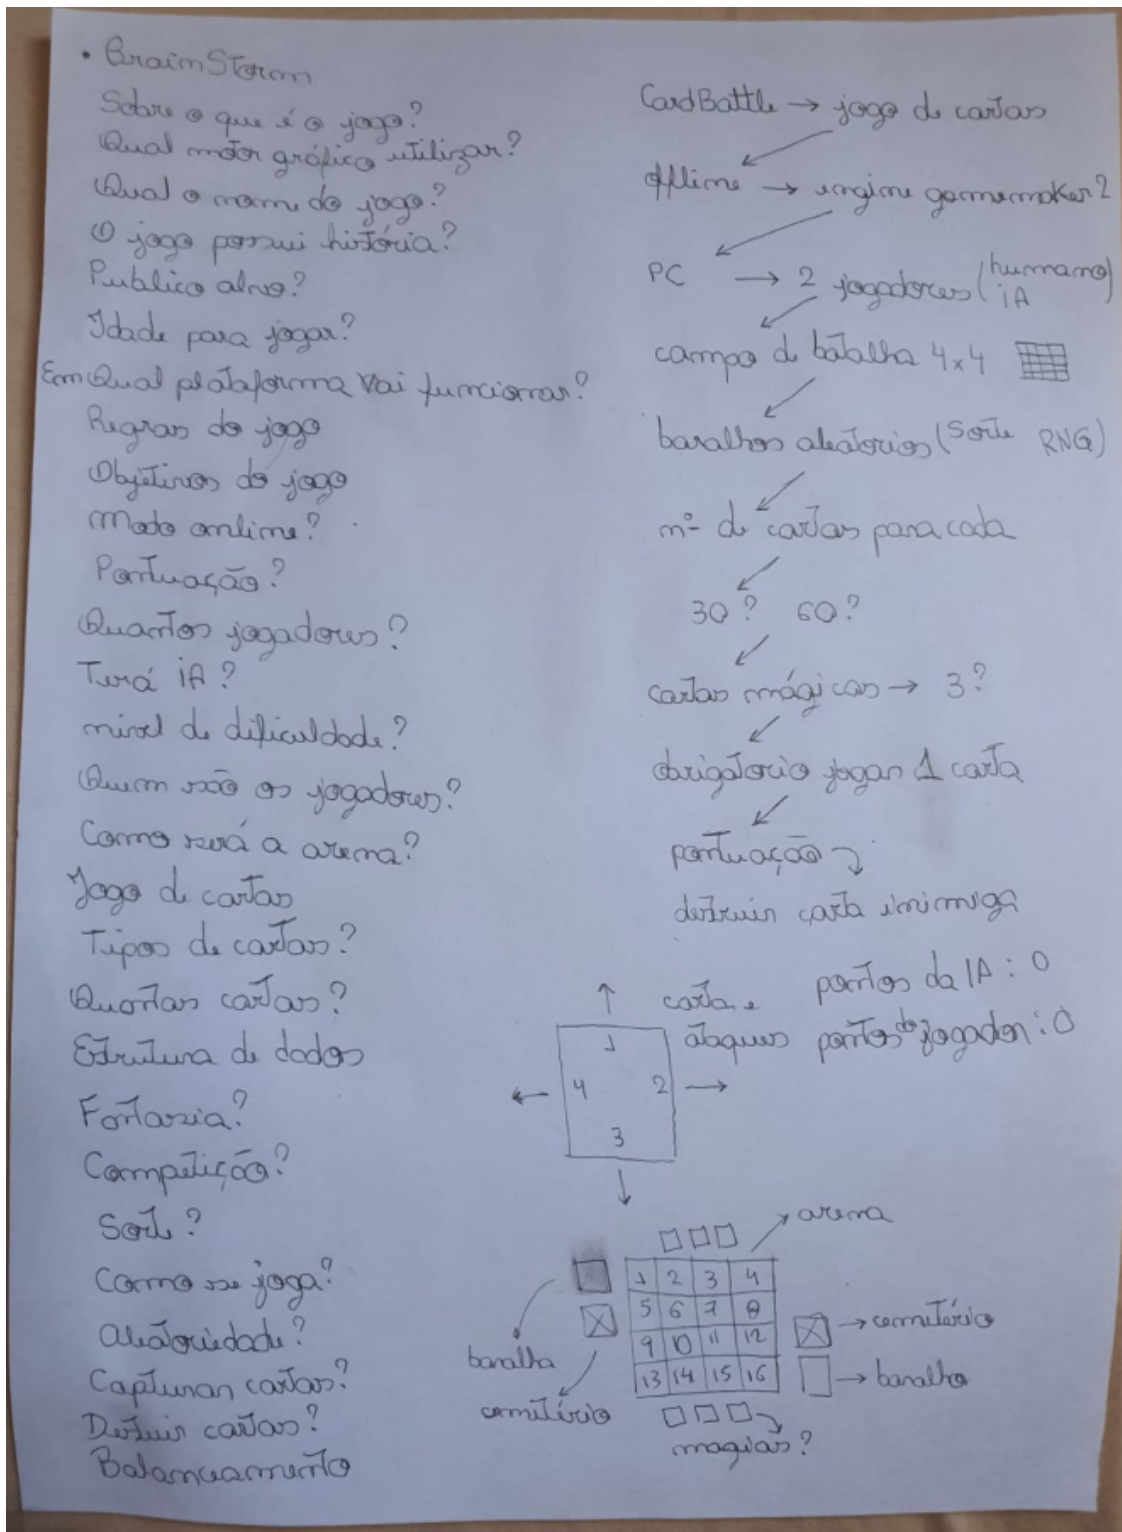 • BrainStorm
Sobre o que é o jogo?
Qual motor gráfico utilizar?
Qual o nome do jogo?
O jogo possui história?
Publico alvo?
Idade para jogar?
Em Qual plataforma vai funcionar?
Regras do jogo
Objetivos do jogo
Modo online?
Pontuação?
Quantos jogadores?
Terá iA?
nivel de dificuldade?
Quem são os jogadores?
Como será a arena?
Jogo de cartas
Tipos de cartas?
Quantas cartas?
Estrutura de dados
Fantasia?
Competição?
Sorte?
Como se joga?
Aleatoriedade?
Capturar cartas?
Destuir cartas?
Balanceamento
CardBattle → jogo de cartas
offline → engine gamemaker2
PC → 2 jogadores (humano
iA)
campo de batalha 4x4
baralhos aleatórios (Sorte RNG)
nº de cartas para cada
30? 60?
cartas mágicas → 3?
obrigatorio jogar 1 carta
pontuação
destruir carta inimiga
pontos da IA: 0
pontos do jogador: 0
carta e
ataques
1
4 2
3
arena
1 2 3 4
5 6 7 8
9 10 11 12
13 14 15 16
baralha
cemitério
→ cemitério
→ baralho
magias?